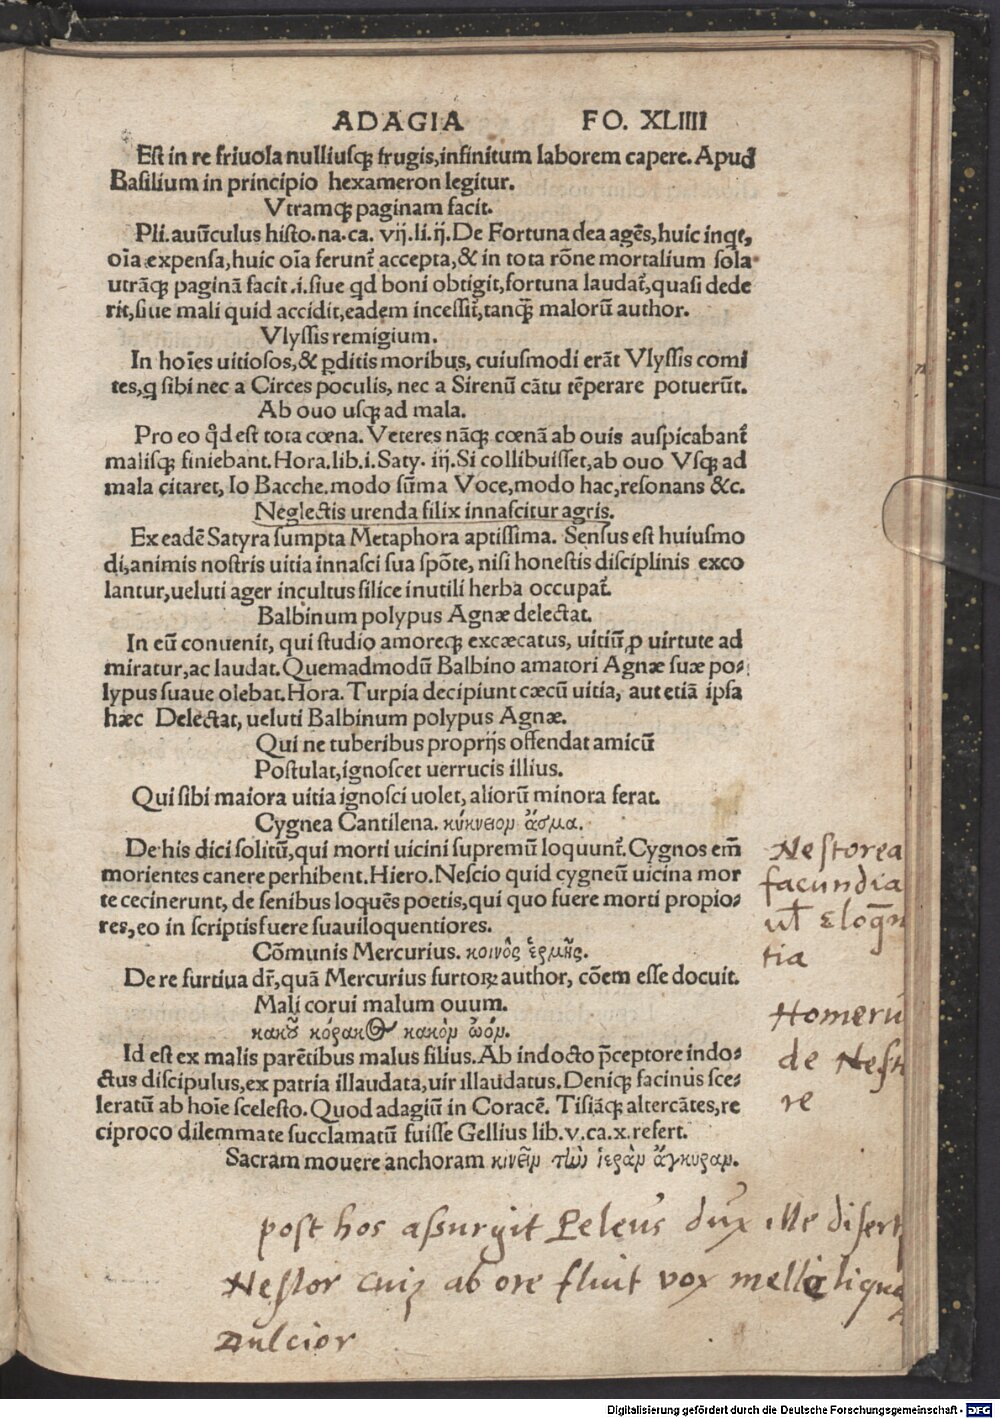 ADAGIA FO. XLIIII
Est in re friuola nulliusqꝫ frugis,infinitum laborem capere. Apud
Basilium in principio hexameron legitur.
Vtramqꝫ paginam facit.
Pli.auūculus histo.na.ca. vij.li.ij.De Fortuna dea agēs,huic inqt,
oīa expensa,huic oīa ferunt̄ accepta,& in tota rōne mortalium sola
utrāqꝫ paginā facit.i.siue qd boni obtigit,fortuna laudat̄,quasi dede
rit,siue mali quid accidit,eadem incessit̄,tanqꝫ̄ malorū author.
Vlyssis remigium.
In hoīes uitiosos,& ꝑditis moribus, cuiusmodi erāt Vlyssis comi
tes,q̄ sibi nec a Circes poculis, nec a Sirenū cātu tēperare potuerūt.
Ab ouo usqꝫ ad mala.
Pro eo q̄d est tota cœna. Veteres nāqꝫ cœnā ab ouis auspicabant̄
malisqꝫ finiebant.Hora.lib.i.Saty. iij.Si collibuisset,ab ouo Vsqꝫ ad
mala citaret, Io Bacche.modo sūma Voce,modo hac,resonans &c.
Neglectis urenda filix innascitur agris.
Ex eadē Satyra sumpta Metaphora aptissima. Sensus est huiusmo
di,animis nostris uitia innasci sua spōte, nisi honestis disciplinis exco
lantur,ueluti ager incultus silice inutili herba occupat̄.
Balbinum polypus Agnæ delectat.
In eū conuenit, qui studio amoreqꝫ excæcatus, uitiū ꝓ uirtute ad
miratur,ac laudat.Quemadmodū Balbino amatori Agnæ suæ po⸗
lypus suaue olebat.Hora. Turpia decipiunt cæcū uitia, aut etiā ipsa
hæc Delectat, ueluti Balbinum polypus Agnæ.
Qui ne tuberibus proprijs offendat amicū
Postulat,ignoscet uerrucis illius.
Qui sibi maiora uitia ignosci uolet, aliorū minora ferat.
Cygnea Cantilena. κύκνειομ ἄσμα.
De his dici solitū,qui morti uicini supremū loquunt̄. Cygnos em̄
morientes canere perhibent.Hiero.Nescio quid cygneū uicina mor
te cecinerunt, de senibus loquēs poetis,qui quo fuere morti propio⸗
res,eo in scriptis fuere suauiloquentiores.
Cōmunis Mercurius. κοινὸς ἑρμῆς.
De re furtiua dr̄,quā Mercurius furtoꝝ author, cōem esse docuit.
Mali corui malum ouum.
κακοῦ κόρακος κακὸμ ὠόμ.
Id est ex malis parētibus malus filius. Ab indocto p̄ceptore indo⸗
ctus discipulus,ex patria illaudata,uir illaudatus. Deniqꝫ facinus sce⸗
leratū ab hoīe scelesto. Quod adagiū in Coracē. Tisiāqꝫ altercātes,re
ciproco dilemmate succlamatū fuisse Gellius lib.v.ca.x.refert.
Sacram mouere anchoram κινεῖμ τὴν ἱερὰμ ἄγκυραμ.
Nestorea
facundia
ul̄ Eloq̄n
tia
Homerū
de Nesto
re
post hos assurgit Peleus dux ille disert
Nestor cuiꝫ ab ore fluit vox melle liqua
Dulcior
Digitalisierung gefördert durch die Deutsche Forschungsgemeinschaft - DFG